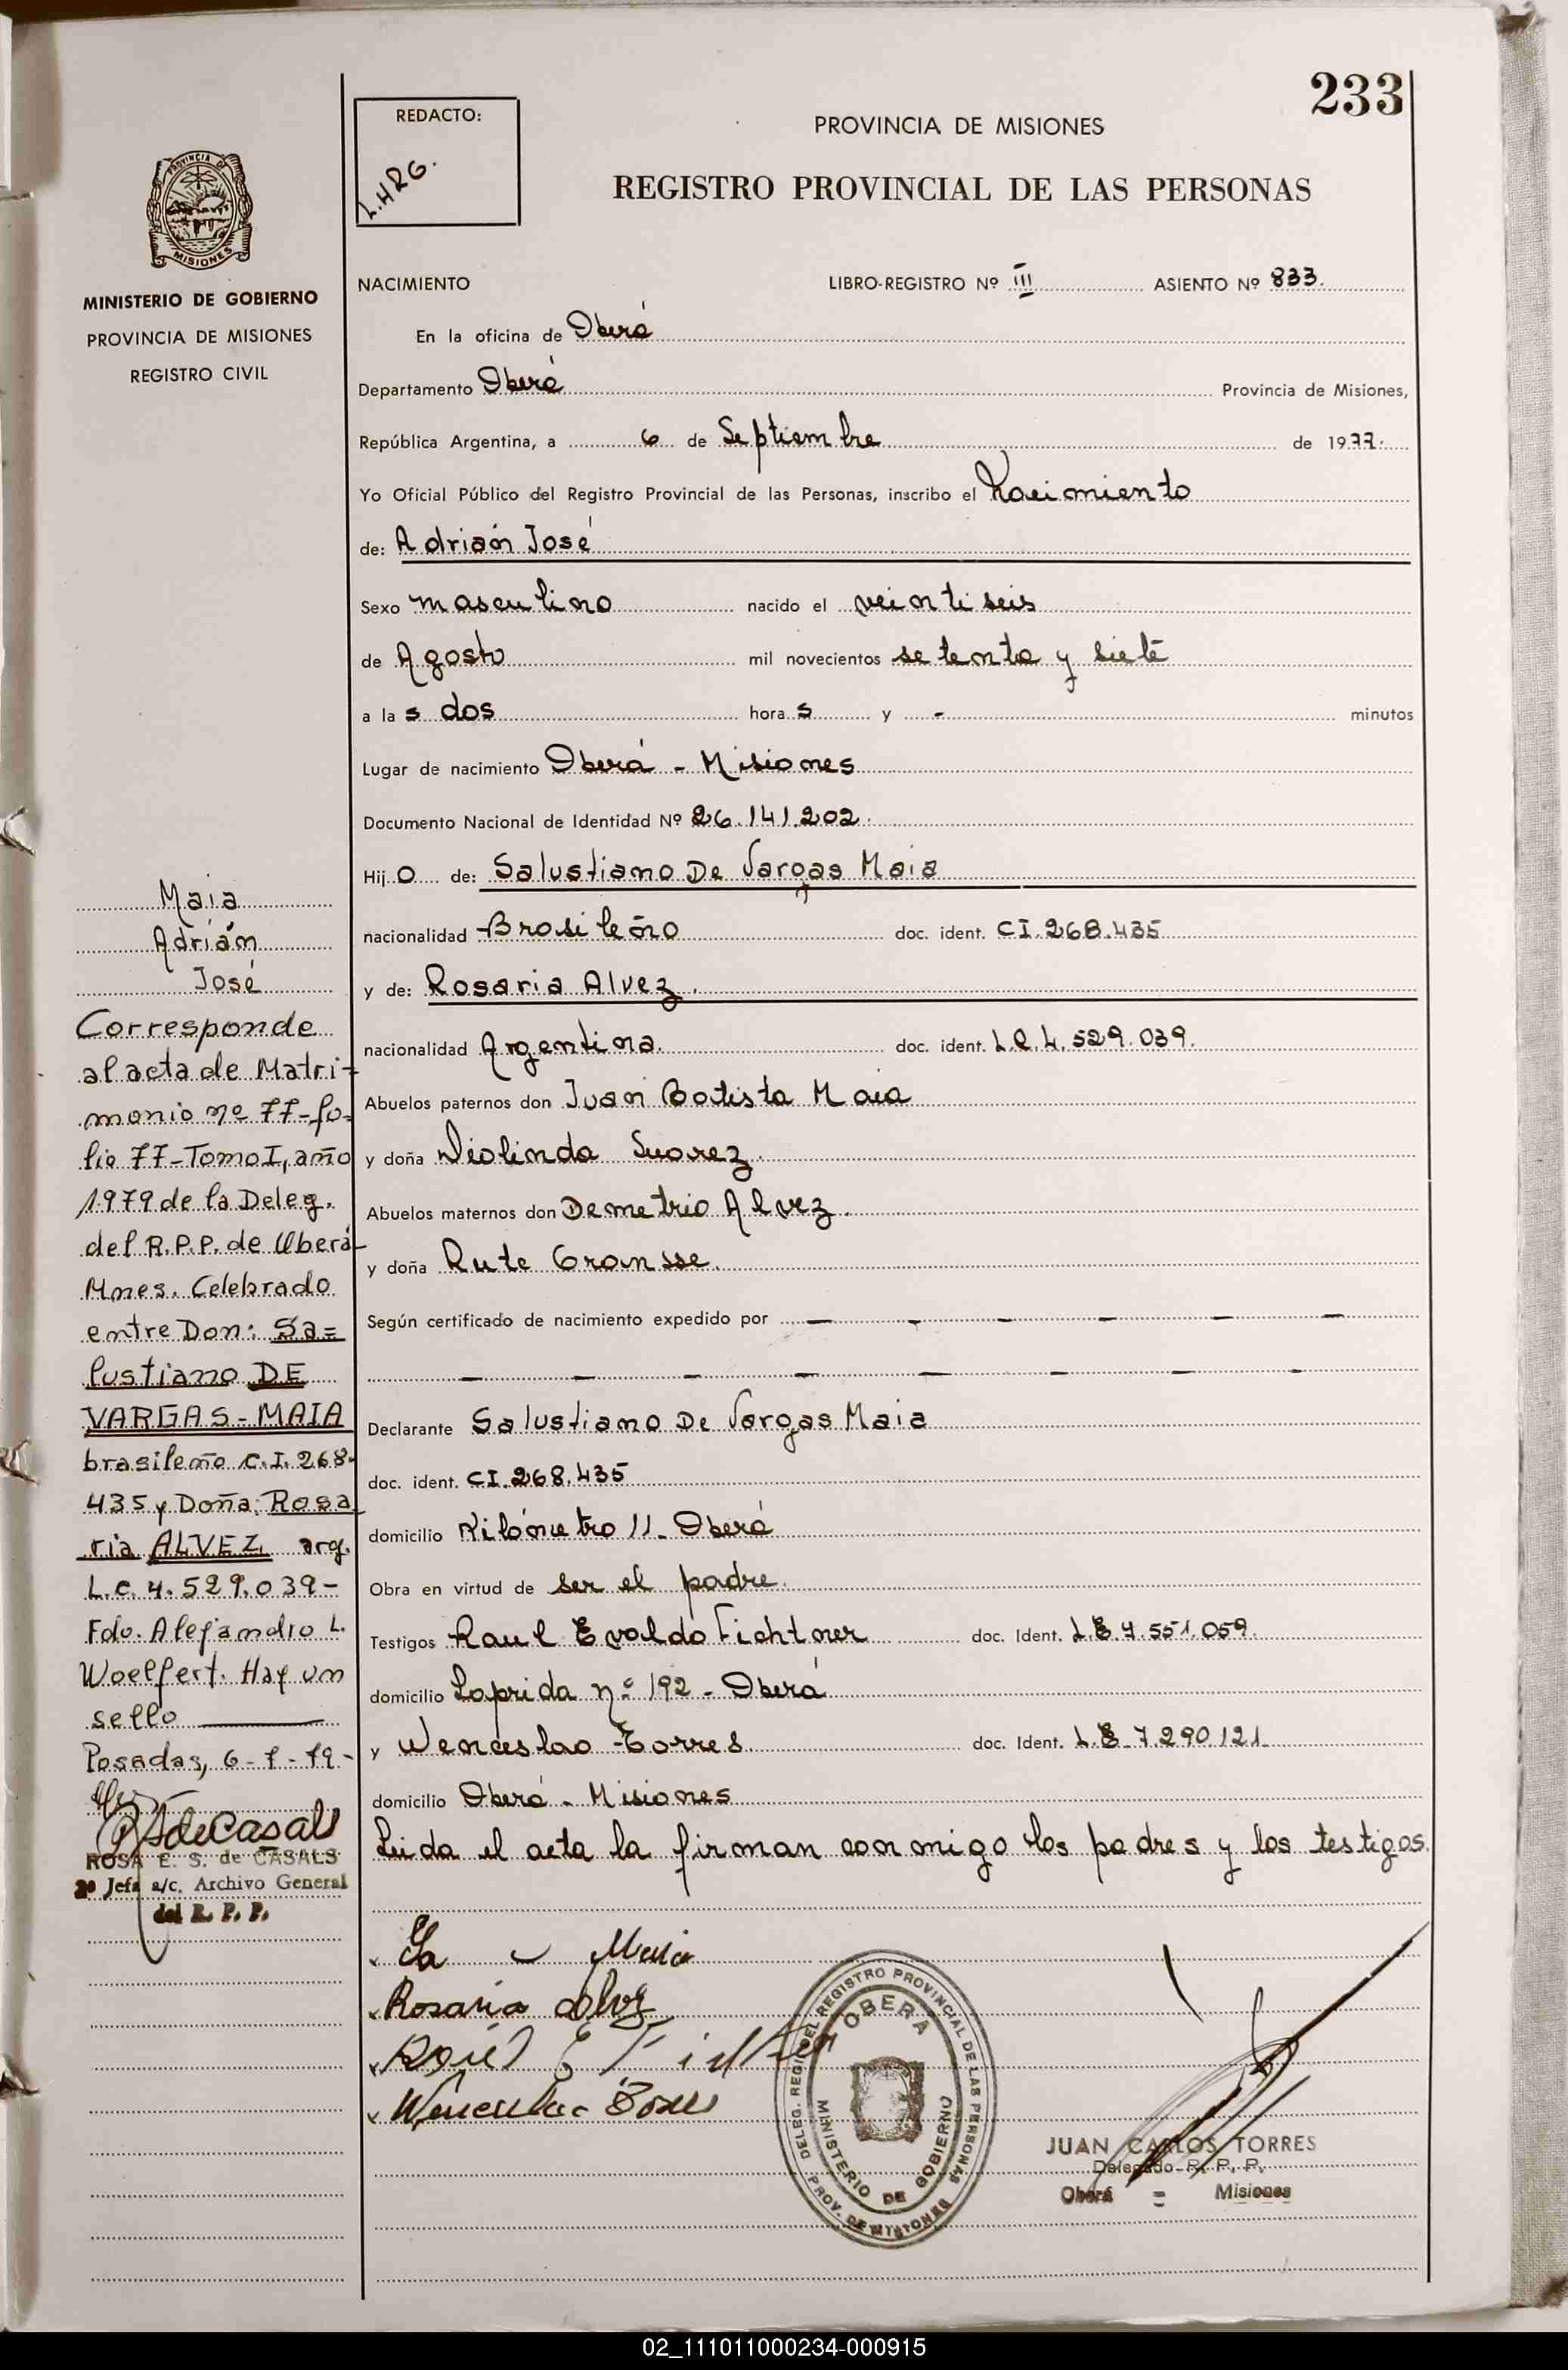 233
REDACTO:
L.HRG.
PROVINCIA DE MISIONES
REGISTRO PROVINCIAL DE LAS PERSONAS
PROVINCIA DE
MISIONES
MINISTERIO DE GOBIERNO
PROVINCIA DE MISIONES
REGISTRO CIVIL
NACIMIENTO LIBRO-REGISTRO Nº III ASIENTO Nº 833.
En la oficina de Oberá
Departamento Oberá Provincia de Misiones,
República Argentina, a 6 de Septiembre de 1977.
Yo Oficial Público del Registro Provincial de las Personas, inscribo el Nacimiento
de: Adrián José
Sexo masculino nacido el veintiseis
de Agosto mil novecientos setenta y siete
a las dos horas y - minutos
Lugar de nacimiento Oberá - Misiones
Documento Nacional de Identidad Nº 26.141.202.
Hijo de: Salustiano De Vargas Maia
nacionalidad Brasileño doc. ident. CI.268.435
y de: Rosaria Alvez.
nacionalidad Argentina. doc. ident. L.C.4.529.039.
Abuelos paternos don Juan Batista Maia
y doña Diolinda Suarez.
Abuelos maternos don Demetrio Alvez.
y doña Rute Gransse.
Según certificado de nacimiento expedido por — — — — —
— — — — — — — —
Declarante Salustiano De Vargas Maia
doc. ident. CI.268.435
domicilio Kilómetro 11 - Oberá
Obra en virtud de ser el padre.
Testigos Raul Evaldo Fichtner doc. Ident. L.E.7.551.059.
domicilio Laprida nº 192 - Oberá
y Wenceslao Torres doc. Ident. L.E. 7.290.121
domicilio Oberá - Misiones
Leida el acta la firman conmigo los padres y los testigos.
Maia
Adrián
José
Corresponde
al acta de Matri-
monio nº 77-fo-
lio 77-Tomo I, año
1979 de la Deleg.
del R.P.P. de Oberá-
Mnes. Celebrado
entre Don: Sa=
lustiano DE
VARGAS-MAIA
brasileño C.I. 268.
435 y Doña: Rosa
ria ALVEZ, arg.
L.C. 4.529.039-
Fdo. Alejandro L.
Woelfert. Hay un
sello
Posadas, 6-7-79.-
RSdeCasals
ROSA E. S. de CASALS
2º Jefa a/c. Archivo General
del R. P. P.
Maia
Rosaria Alvez
DELEG. REGI. DEL REGISTRO PROVINCIAL DE LAS PERSONAS
OBERA
MINISTERIO DE GOBIERNO
PROV. DE MISIONES
JUAN CARLOS TORRES
Delegado R. P. P.
Oberá = Misiones
02_111011000234-000915